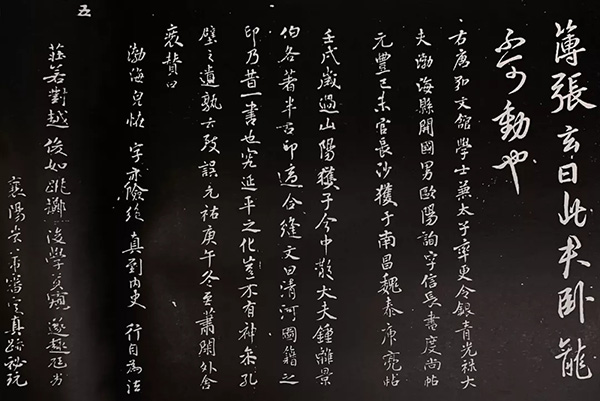 薄張玄曰此君臥龍
不可動也
右唐弘文館學士兼太子率更令銀青光祿大
夫渤海縣開國男歐陽詢字信本書度尚帖
元豐己未官長沙獲于南昌魏泰庾亮帖
壬戌歲過山陽獲于今中散大夫鍾離景
伯各著半古印適合縫文曰清河圖籍之
印乃昔一書也宛延平之化豈不有神柰孔
壁之遺孰致誤元祐庚午冬至蕭閑外舍
贊曰
渤海光怪 字亦險絕 真到內史 行自為法
莊若對越 俊如跳擲 後學莫窺 遂趨尫劣
襄陽米黻審定真跡祕玩
五